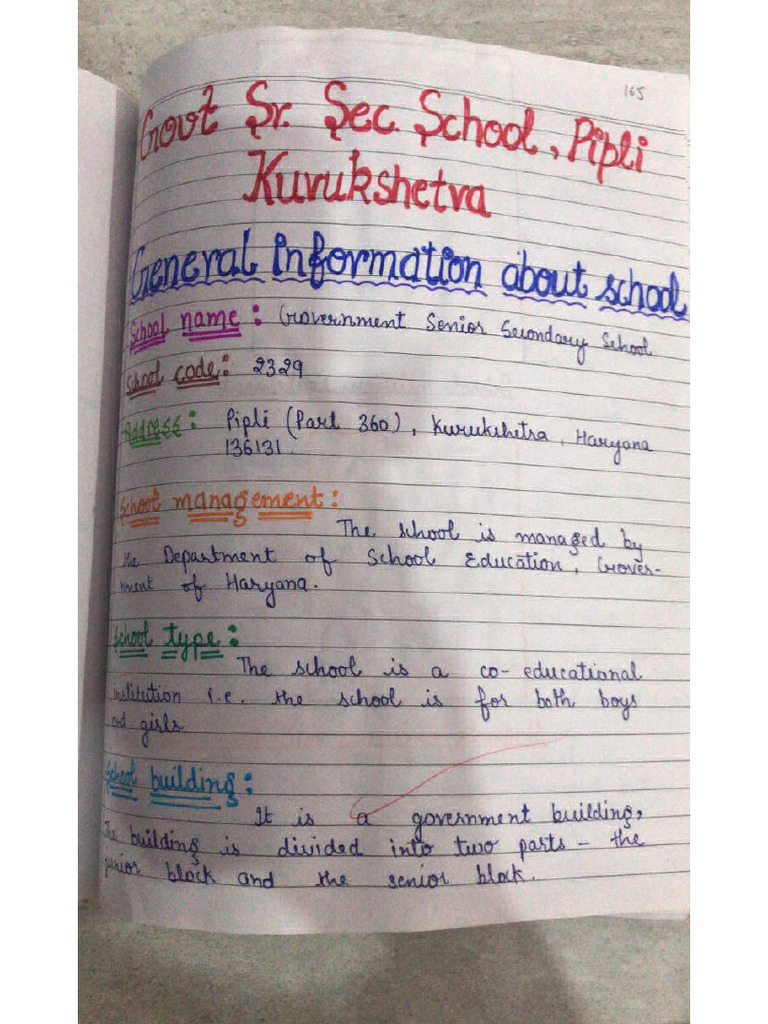 165
Govt Sr. Sec. School, Pipli
Kurukshetra
General information about school
School name : Government Senior Secondary School
School code : 2329
Address : Pipli (Part 360), Kurukshetra, Haryana
136131.
School management :
The school is managed by
the Department of School Education, Gover-
nment of Haryana.
School type :
The school is a co-educational
institution i.e. the school is for both boys
and girls
School building :
It is a government building,
The building is divided into two parts - the
junior block and the senior block.